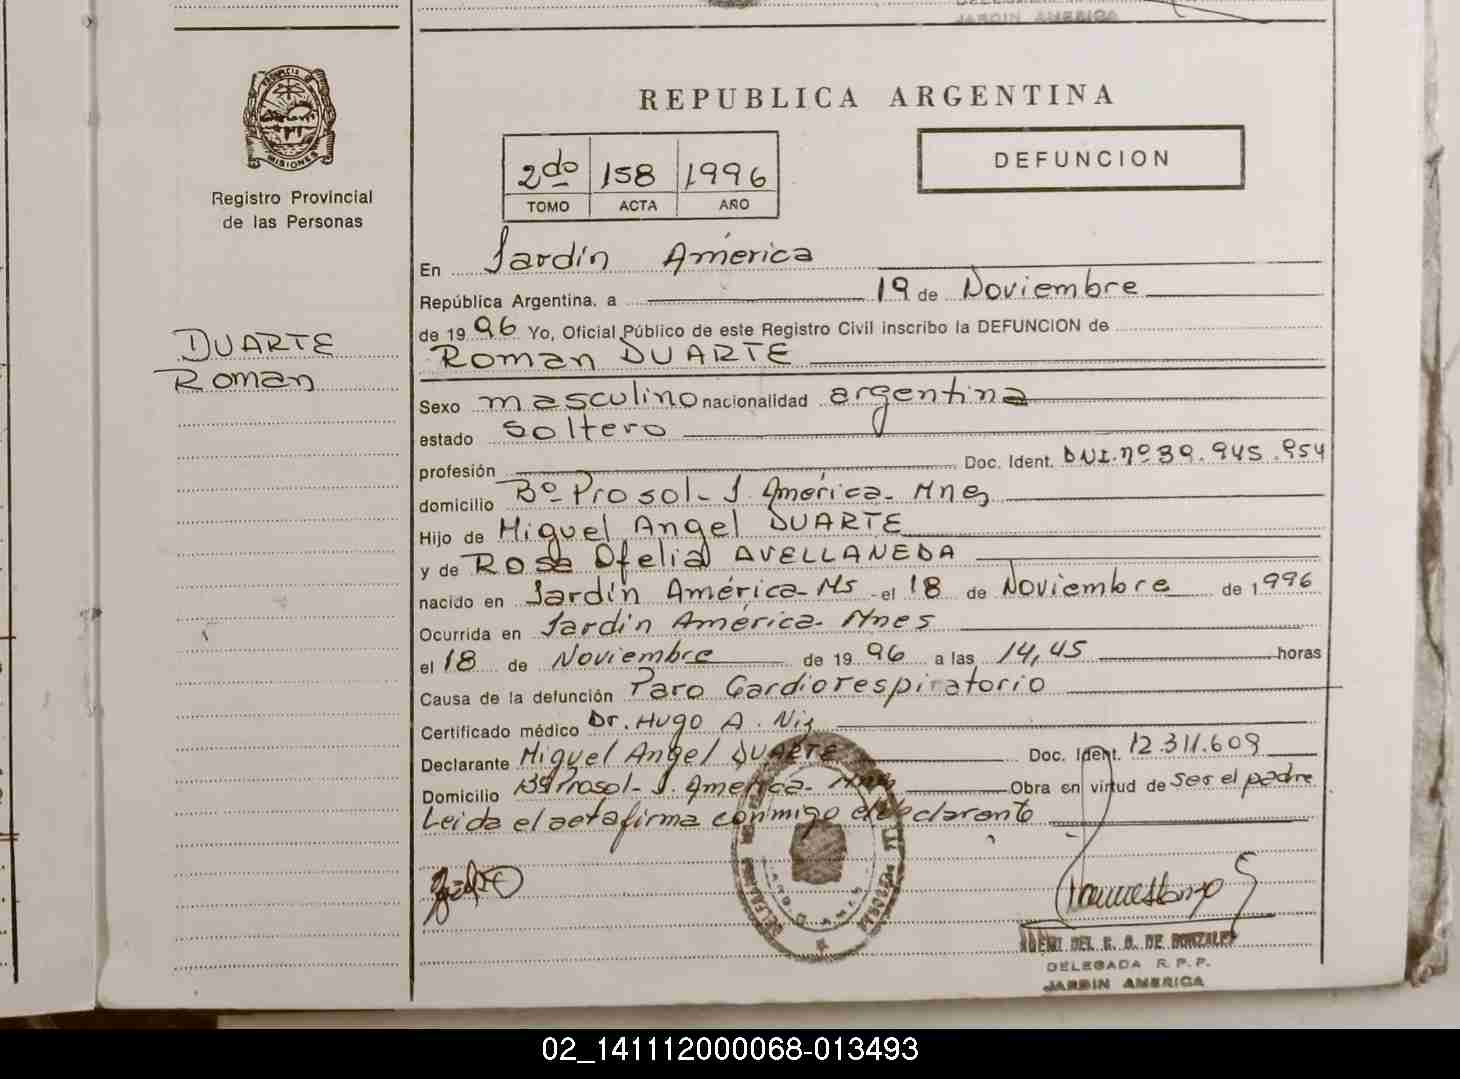 JARDIN AMERICA
PROVINCIA DE
MISIONES
Registro Provincial
de las Personas
DUARTE
Roman
REPUBLICA ARGENTINA
2do 158 1996
TOMO ACTA AÑO
DEFUNCION
En Jardín América
República Argentina, a 19 de Noviembre
de 1996 Yo, Oficial Público de este Registro Civil inscribo la DEFUNCION de
Roman DUARTE
Sexo masculino nacionalidad argentina
estado soltero
profesión Doc. Ident. DNI. nº 39.945.954
domicilio Bº Prosol- J. América- Mnes
Hijo de Miguel Angel DUARTE
y de Rosa Ofelia AVELLANEDA
nacido en Jardín América- Ms el 18 de Noviembre de 1996
Ocurrida en Jardín América- Mnes
el 18 de Noviembre de 1996 a las 14,45 horas
Causa de la defunción Paro Cardiorespiratorio
Certificado médico Dr. Hugo A.
Declarante Miguel Angel DUARTE Doc. Ident. 12.311.609
Domicilio Bº Prosol- J. América- Mnes Obra en virtud de ser el padre
Leida el acta firma conmigo el declarante
DE GONZALEZ
DELEGADA R.P.P.
JARDIN AMERICA
02_141112000068-013493